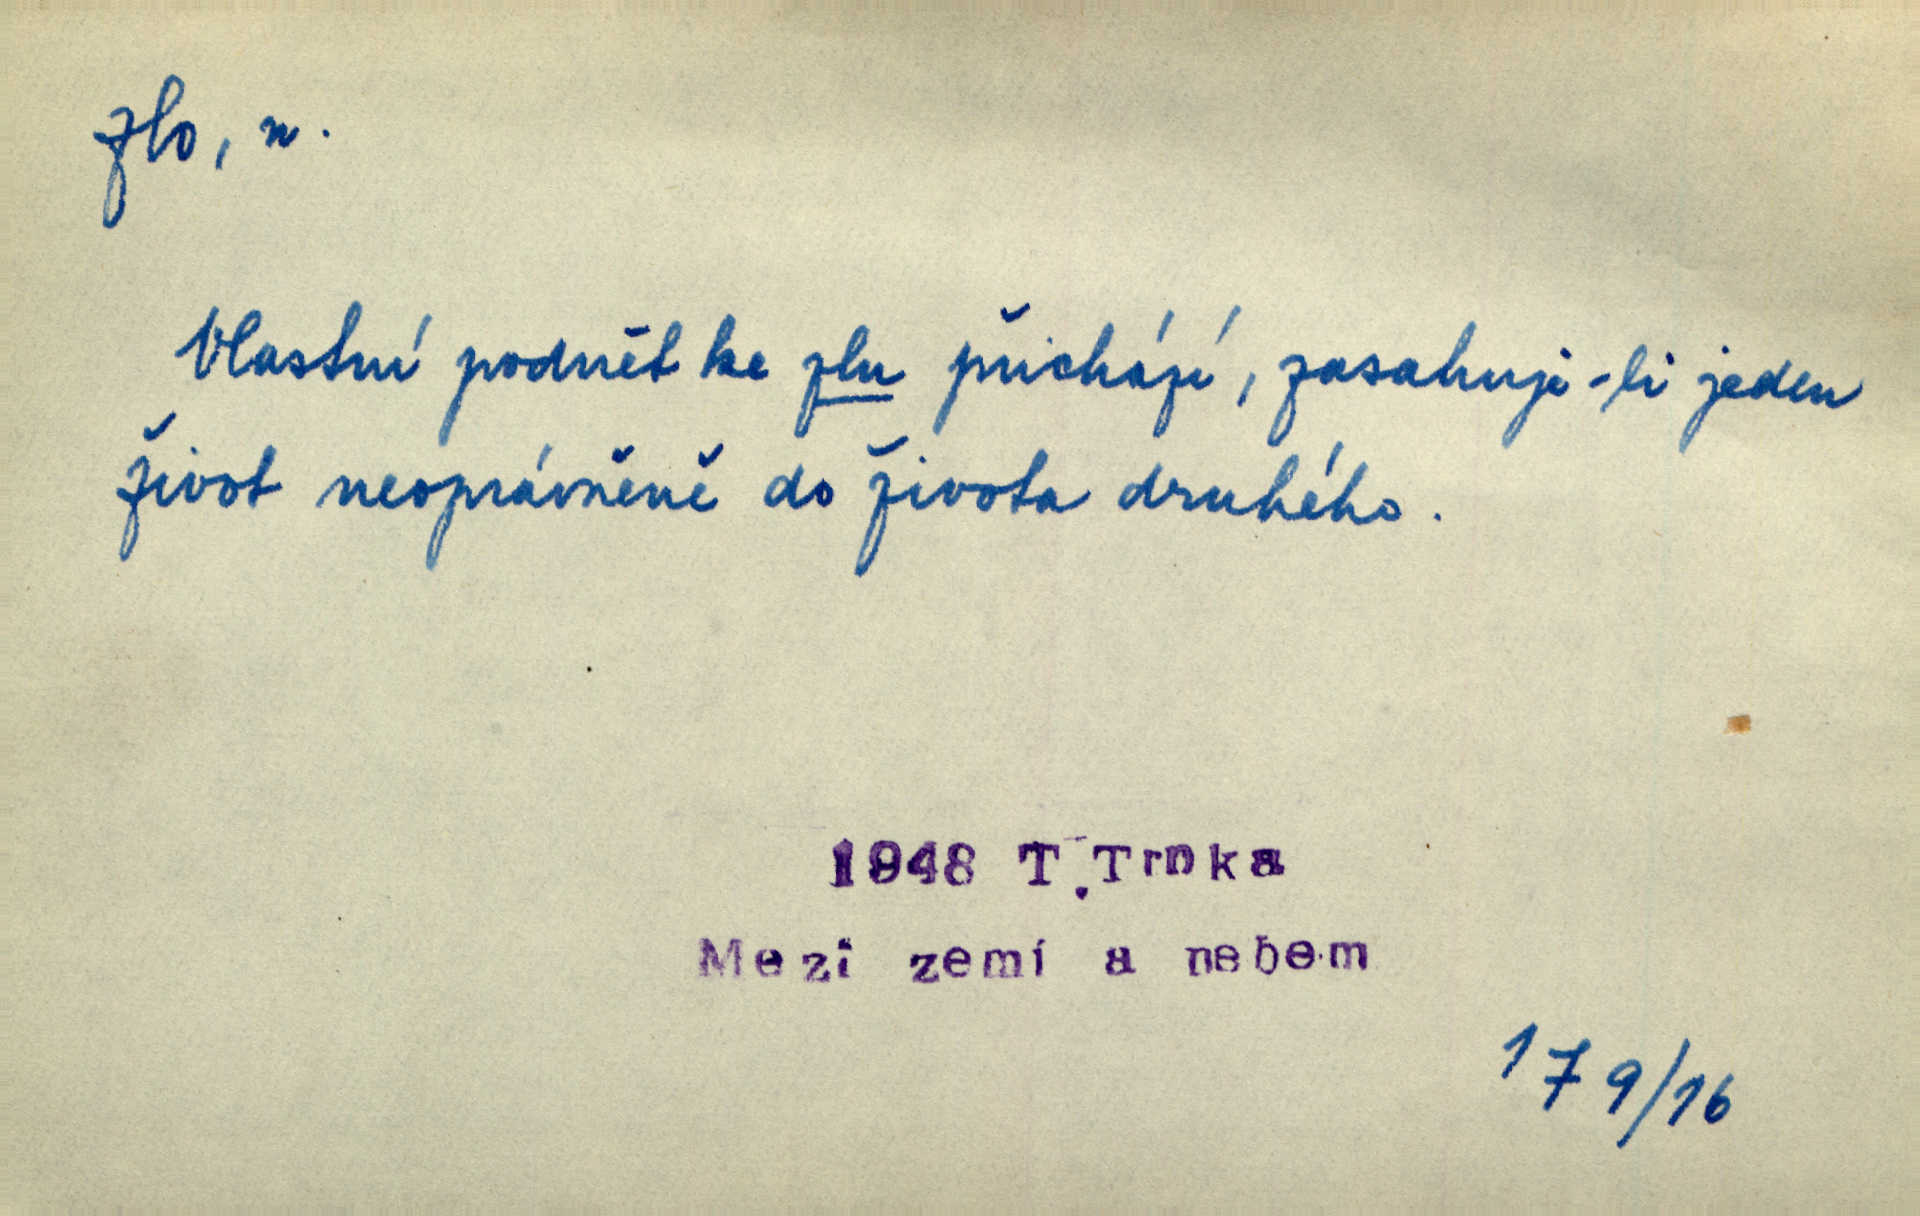 zlo, n.
Vlastní podnět ke zlu přichází, zasahuje-li jeden
život neoprávněně do života druhého.
1948 T. Trnka
Mezi zemí a nebem
179/16